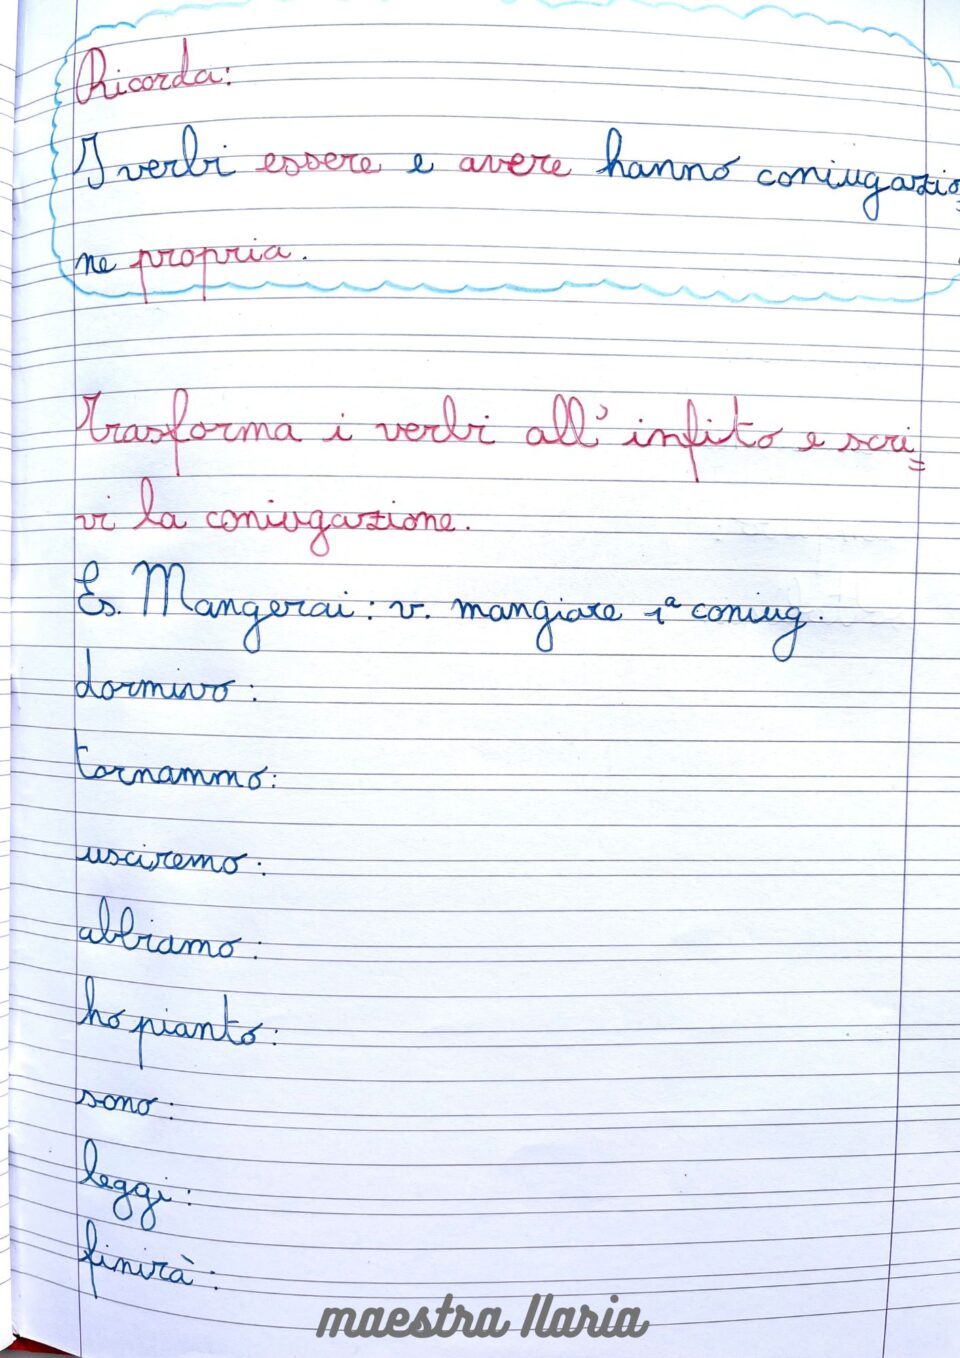 Ricorda:
I verbi essere e avere hanno coniugazio=
ne propria.
Trasforma i verbi all'infito e scri=
vi la coniugazione.
Es. Mangerai: v. mangiare 1ª coniug.
dormivo:
tornammo:
usciremo:
abbiamo:
ho pianto:
sono:
leggi:
finirà:
maestra Ilaria